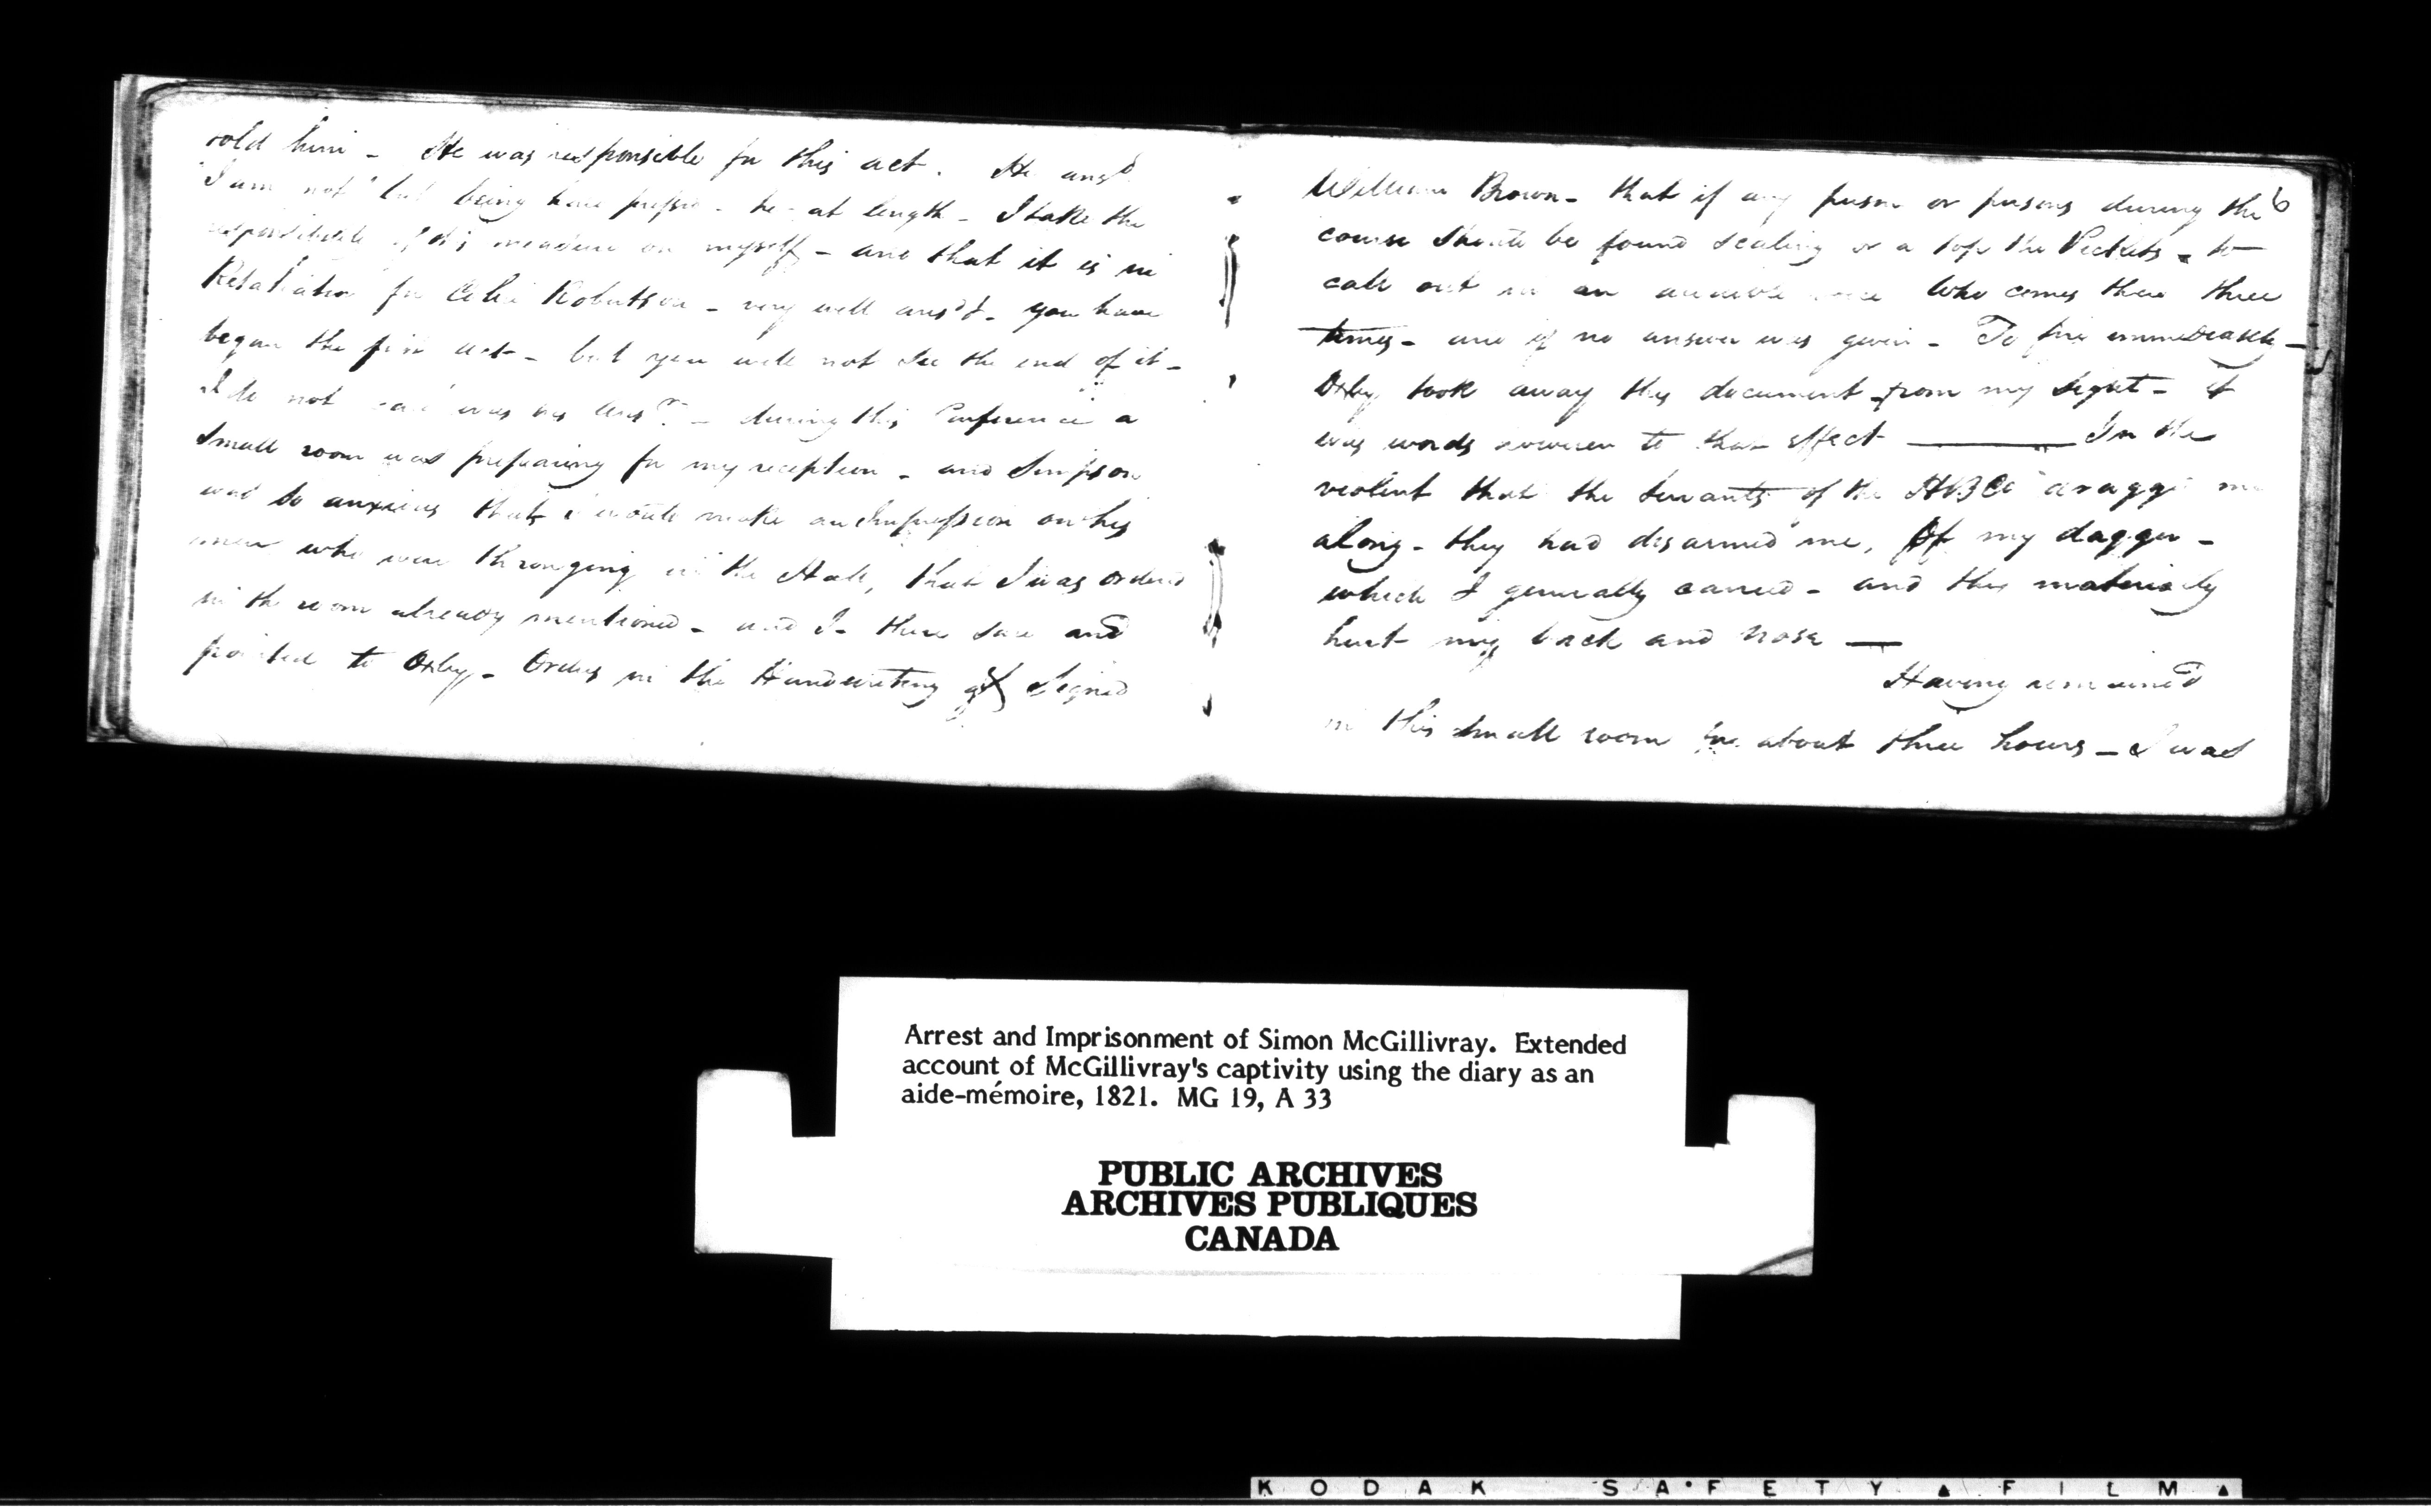 told him - He was responsible for this act. He ansd
I am not but being hard pressed - he at length - I take the
responsibility of this measure on myself - and that it is in
Retaliation for Colin Robertson - very well ansd I - you have
began the first act - but you will not see the end of it -
I do not care was his ansr - during this Conference a
Small room was preparing for my reception - and Simpson
was so anxious that I would make an Impression on his
men who were thronging in the Hall, that I was ordered
in the room already mentioned - and I there saw and
pointed to Oxley - Orders in the Handwriting of & Signed
6
William Brown - that if any person or persons during the
course should be found scaling or a top the Pickets - to
call out in an audible voice Who comes there three
times - and if no answer was given - To fire immediately -
Oxley took away this document from my sight - it
was words however to that effect - In the
violent that the Servants of the HBCo dragg me
along - they had disarmed me, Of my dagger -
which I generally carried - and this materially
hurt my back and nose -
Having remained
in this small room for about three hours - I was
Arrest and Imprisonment of Simon McGillivray. Extended
account of McGillivray's captivity using the diary as an
aide-mémoire, 1821. MG 19, A 33
PUBLIC ARCHIVES
ARCHIVES PUBLIQUES
CANADA
KODAK SAFETY FILM